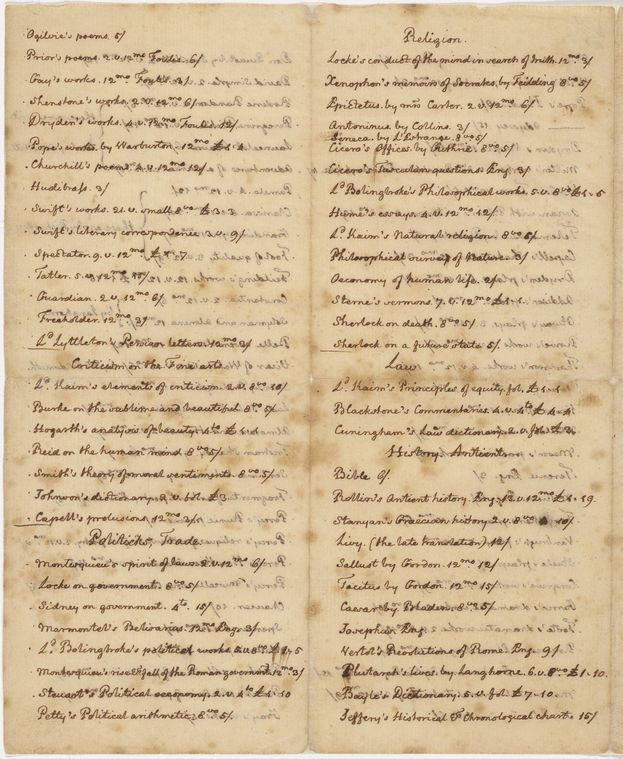 Ogilvie's poems. 5/
Prior's poems. 2.v. 12mo. Foulis. 6/
Gay's works. 12mo Foulis. 3/
Shenstone's works. 2.v. 12mo 6/
Dryden's works. 4.v. 12mo Foulis. 12/
Pope's works. by Warburton. 12mo £1-4
Churchill's poems. 4.v. 12mo 12/
Hudibrass. 3/
Swift's works. 21.v. small 8vo £3-3
Swift's literary correspondence. 3.v. 9/
Spectator. 9.v. 12mo £1-7
Tatler. 5.v. 12mo 15/
Guardian. 2.v. 12mo 6/
Freeholder. 12mo 3/
Ld. Lyttleton's Persian letters. 12mo 3/
Criticism on the Fine arts
Ld. Kaim's elements of criticism. 2.v. 8vo 10/
Burke on the sublime and beautiful 8vo 5/
Hogarth's analysis of beauty. 4to £1-1
Reid on the human mind. 8vo 5/
Smith's theory of moral sentiments. 8vo 5/
Johnson's dictionary. 2.v. fol. £3.
Capell's prolusions. 12mo 3/
Politicks, Trade.
Montesquieu's spirit of laws. 2.v. 12mo 6/
Locke on government. 8vo 5/
Sidney on government. 4to. 15/
Marmontel's Belisarius. 12mo Eng. 3/
Ld. Bolingbroke's political works. 5.v. 8vo £1-5
Montesquieu's rise & fall of the Roman government. 12mo 3/
Steuart's Political oeconomy. 2.v. 4to £1-10
Petty's Political arithmetic. 8vo 5/
Religion.
Locke's conduct of the mind in search of truth. 12mo 3/
Xenophon's memoirs of Socrates. by Feilding. 8vo 5/
Epictetus. by mrs Carter. 2.v. 12mo 6/
Antoninus. by Collins. 3/
Seneca. by L'Estrange. 8vo 5/
Cicero's Offices. by Guthrie. 8vo 5/
Cicero's Tusculan questions Eng. 3/
Ld. Bolingbroke's Philosophical works. 5.v. 8vo £1-5
Hume's essays. 4.v. 12mo 12/
Ld. Kaim's Natural religion. 8vo 6/
Philosophical survey of Nature. 3/
Oeconomy of human life. 2/
Sterne's sermons. 7.v. 12mo £1-1
Sherlock on death. 8vo 5/
Sherlock on a future state 5/
Law
Ld. Kaim's Principles of equity. fol. £1-1
Blackstone's Commentaries. 4.v. 4to £4-4
Cuningham's Law dictionary. 2.v. fol. £3.
History. Antient.
Bible 6/
Rollin's Antient history. Eng. 13.v. 12mo £1-19
Stanyan's Graecian history. 2.v. 8vo 10/
Livy. (the late translation) 12/
Sallust by Gordon. 12mo 12/
Tacitus by Gordon. 12mo 15/
Caesar by Bladen. 8vo 5/
Josephus. Eng.
Vertot's Revolutions of Rome. Eng. 9/
Plutarch's lives. by Langhorne. 6.v. 8vo £1-10
Bayle's Dictionary. 5.v. fol. £7-10.
Jeffery's Historical & Chronological chart. 15/